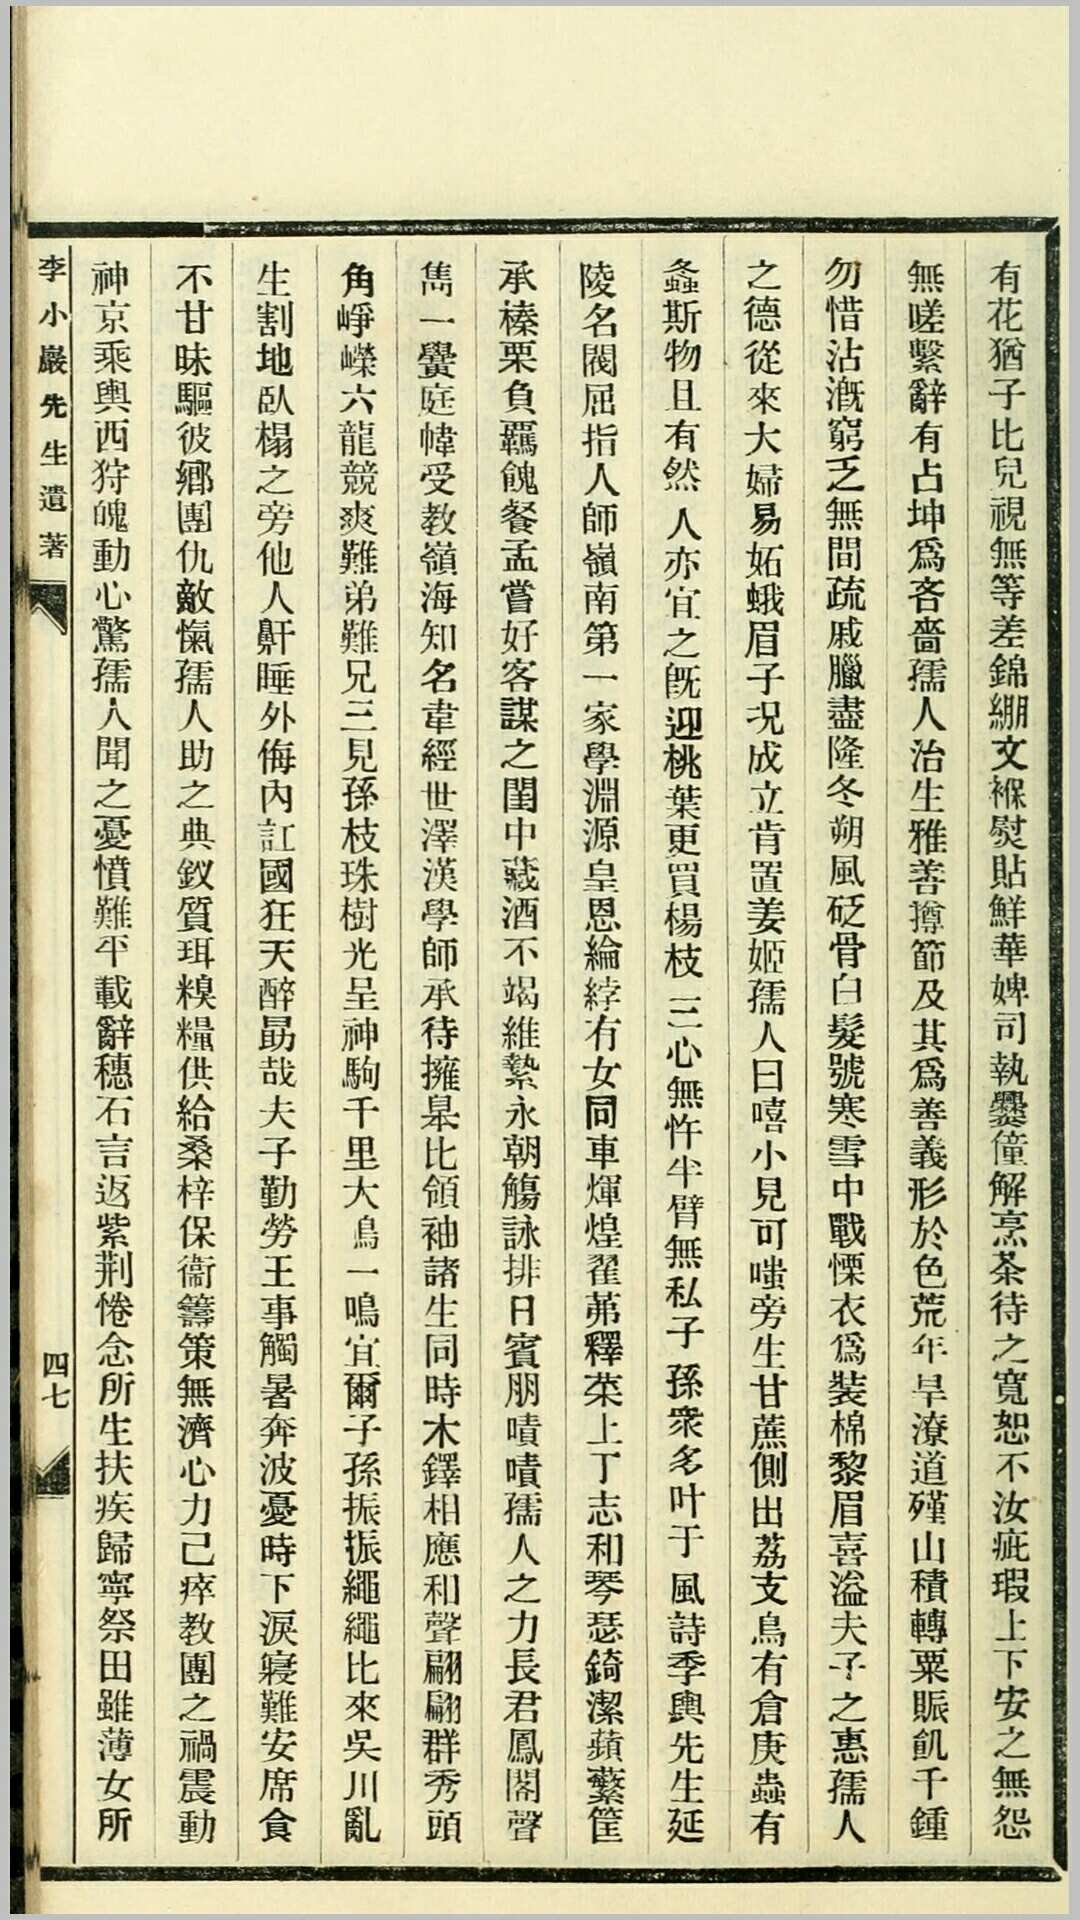 有花猶子比兒視無等差錦綳文褓熨貼鮮華婢司執爨僮解烹茶待之寬恕不汝疵瑕上下安之無怨
無嗟繫辭有占坤爲吝嗇孺人治生雅善撙節及其爲善義形於色荒年旱潦道殣山積轉粟賑飢千鍾
勿惜沾漑窮乏無間疏戚臘盡隆冬朔風砭骨白髮號寒雪中戰慄衣爲裝棉黎眉喜溢夫子之惠孺人
之德從來大婦易妬蛾眉子況成立肯置姜姬孺人曰嘻小見可嗤旁生甘蔗側出荔支鳥有倉庚蟲有
螽斯物且有然人亦宜之旣迎桃葉更買楊枝三心無忤半臂無私子孫衆多叶于風詩季輿先生延
陵名閥屈指人師嶺南第一家學淵源皇恩綸綍有女同車煇煌翟茀釋菜上丁志和琴瑟錡潔蘋蘩筐
承榛栗負羈餽餐孟嘗好客謀之閨中藏酒不竭維縶永朝觴詠排日賓朋嘖嘖孺人之力長君鳳閣聲
雋一黌庭幃受敎嶺海知名韋經世澤漢學師承待擁皋比領袖諸生同時木鐸相應和聲翩翩群秀頭
角崢嶸六龍競爽難弟難兄三見孫枝珠樹光呈神駒千里大鳥一鳴宜爾子孫振振繩繩比來吳川亂
生割地臥榻之旁他人鼾睡外侮內訌國狂天醉勗哉夫子勤勞王事觸暑奔波憂時下淚寢難安席食
不甘味驅彼鄉團仇敵愾孺人助之典釵質珥糗糧供給桑梓保衞籌策無濟心力己瘁敎團之禍震動
神京乘輿西狩魄動心驚孺人聞之憂憤難平載辭穗石言返紫荆惓念所生扶疾歸寧祭田雖薄女所
李小巖先生遺著
四七